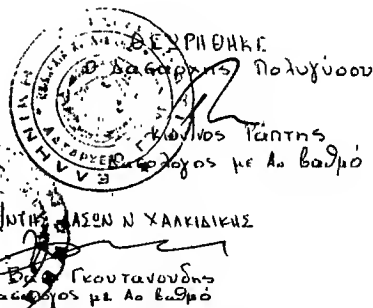 ΘΕΩΡΗΘΗΚΕ
Ο Δασάρχης Πολυγύρου
Κων/νος Ράπτης
Δασολόγος με Αο βαθμό
ΕΛΛΗΝΙΚΗ
ΔΑΣΑΡΧΕΙΟ
ΝΤΗΣ ΔΑΣΩΝ Ν ΧΑΛΚΙΔΙΚΗΣ
Γκουτανούδης
Δασολόγος με Αο βαθμό